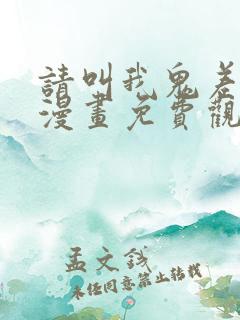 請叫我鬼差
漫畫免費觀
孟文钱
未任同意禁止转载